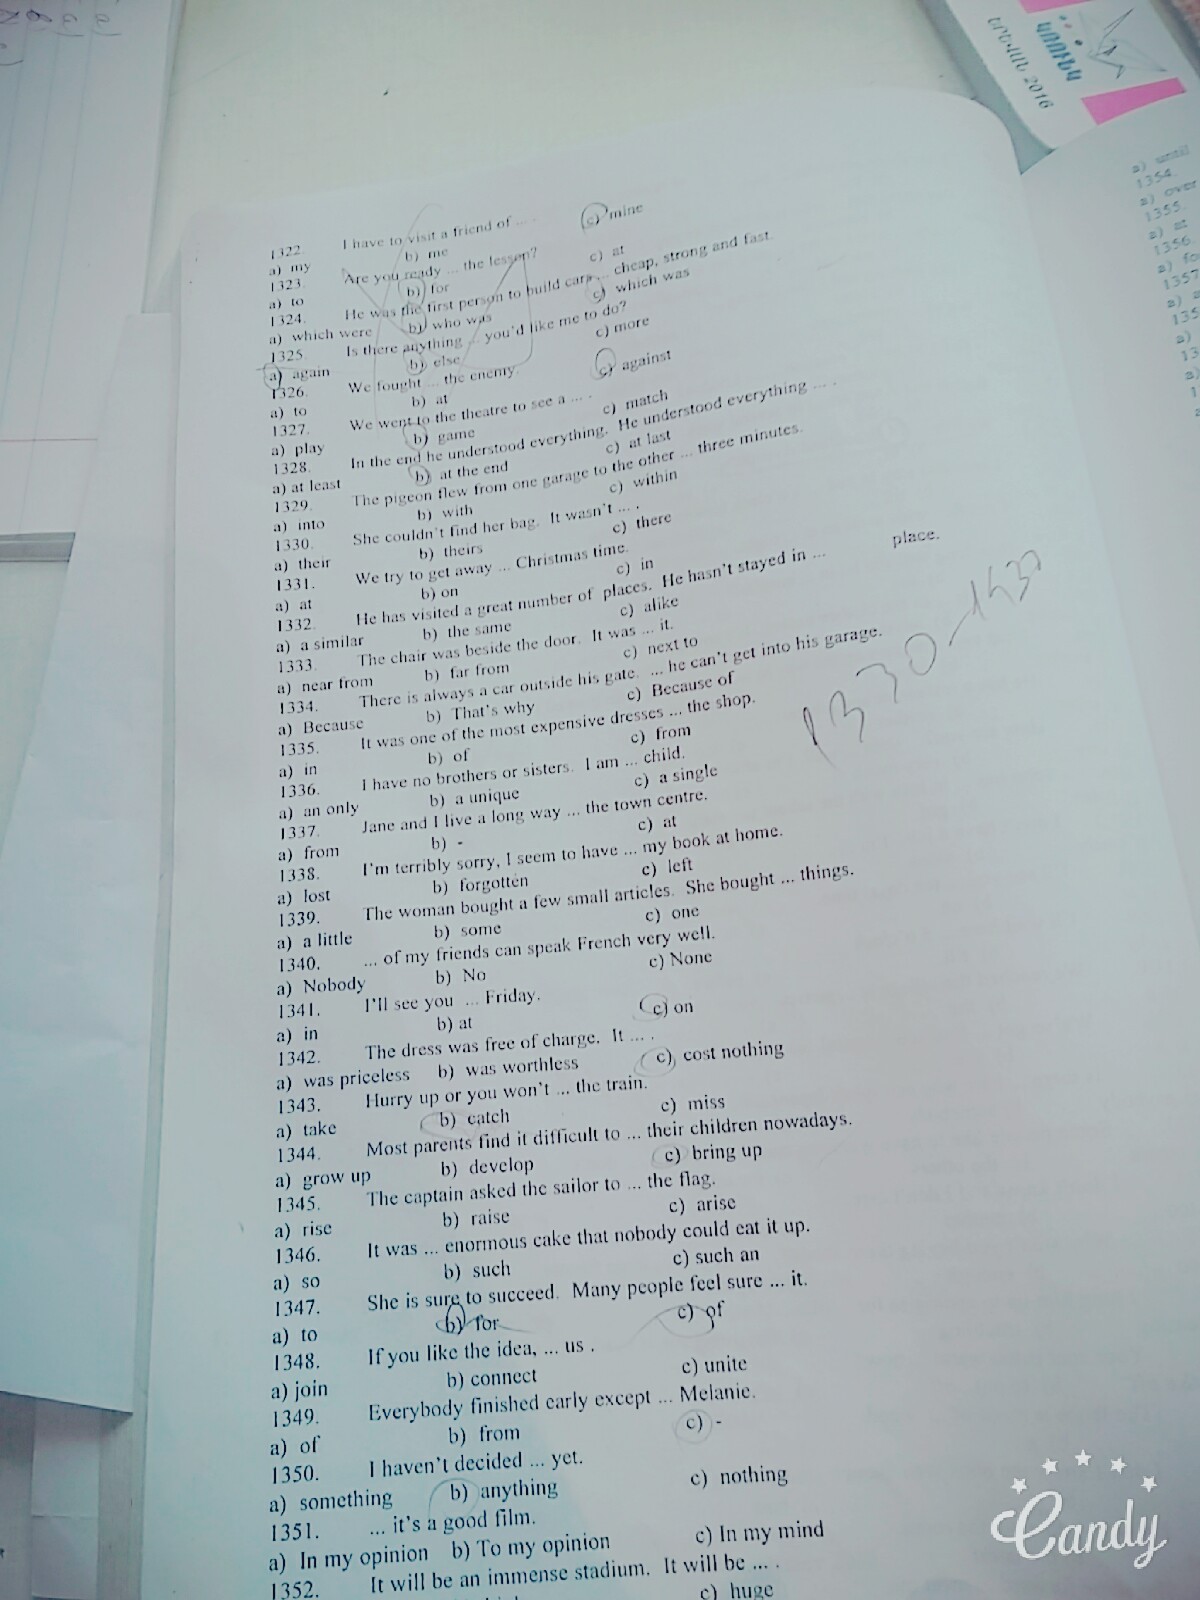 ԿՌՈՒՆԿ
ԵՐԵՎԱՆ 2016
1322 I have to visit a friend of ...
a) my b) me c) mine
1323. Are you ready ... the lesson?
a) to b) for c) at
1324. He was the first person to build cars ... cheap, strong and fast.
a) which were b) who was c) which was
1325 Is there anything ... you'd like me to do?
a) again b) else c) more
1326. We fought ... the enemy.
a) to b) at c) against
1327. We went to the theatre to see a ... .
a) play b) game c) match
1328. In the end he understood everything. He understood everything ... .
a) at least b) at the end c) at last
1329. The pigeon flew from one garage to the other ... three minutes.
a) into b) with c) within
1330. She couldn't find her bag. It wasn't ... .
a) their b) theirs c) there
1331. We try to get away ... Christmas time.
a) at b) on c) in
1332. He has visited a great number of places. He hasn't stayed in ... place.
a) a similar b) the same c) alike
1333. The chair was beside the door. It was ... it.
a) near from b) far from c) next to
1334. There is always a car outside his gate. ... he can't get into his garage.
a) Because b) That's why c) Because of
1335. It was one of the most expensive dresses ... the shop.
a) in b) of c) from
1336. I have no brothers or sisters. I am ... child.
a) an only b) a unique c) a single
1337. Jane and I live a long way ... the town centre.
a) from b) - c) at
1338. I'm terribly sorry, I seem to have ... my book at home.
a) lost b) forgotten c) left
1339. The woman bought a few small articles. She bought ... things.
a) a little b) some c) one
1340. ... of my friends can speak French very well.
a) Nobody b) No c) None
1341. I'll see you ... Friday.
a) in b) at c) on
1342. The dress was free of charge. It ... .
a) was priceless b) was worthless c) cost nothing
1343. Hurry up or you won't ... the train.
a) take b) catch c) miss
1344. Most parents find it difficult to ... their children nowadays.
a) grow up b) develop c) bring up
1345. The captain asked the sailor to ... the flag.
a) rise b) raise c) arise
1346. It was ... enormous cake that nobody could eat it up.
a) so b) such c) such an
1347. She is sure to succeed. Many people feel sure ... it.
a) to b) for c) of
1348. If you like the idea, ... us .
a) join b) connect c) unite
1349. Everybody finished early except ... Melanie.
a) of b) from c) -
1350. I haven't decided ... yet.
a) something b) anything c) nothing
1351. ... it's a good film.
a) In my opinion b) To my opinion c) In my mind
1352. It will be an immense stadium. It will be ... .
c) huge
a) until
1354.
a) over
1355.
a) at
1356.
1357
Candy